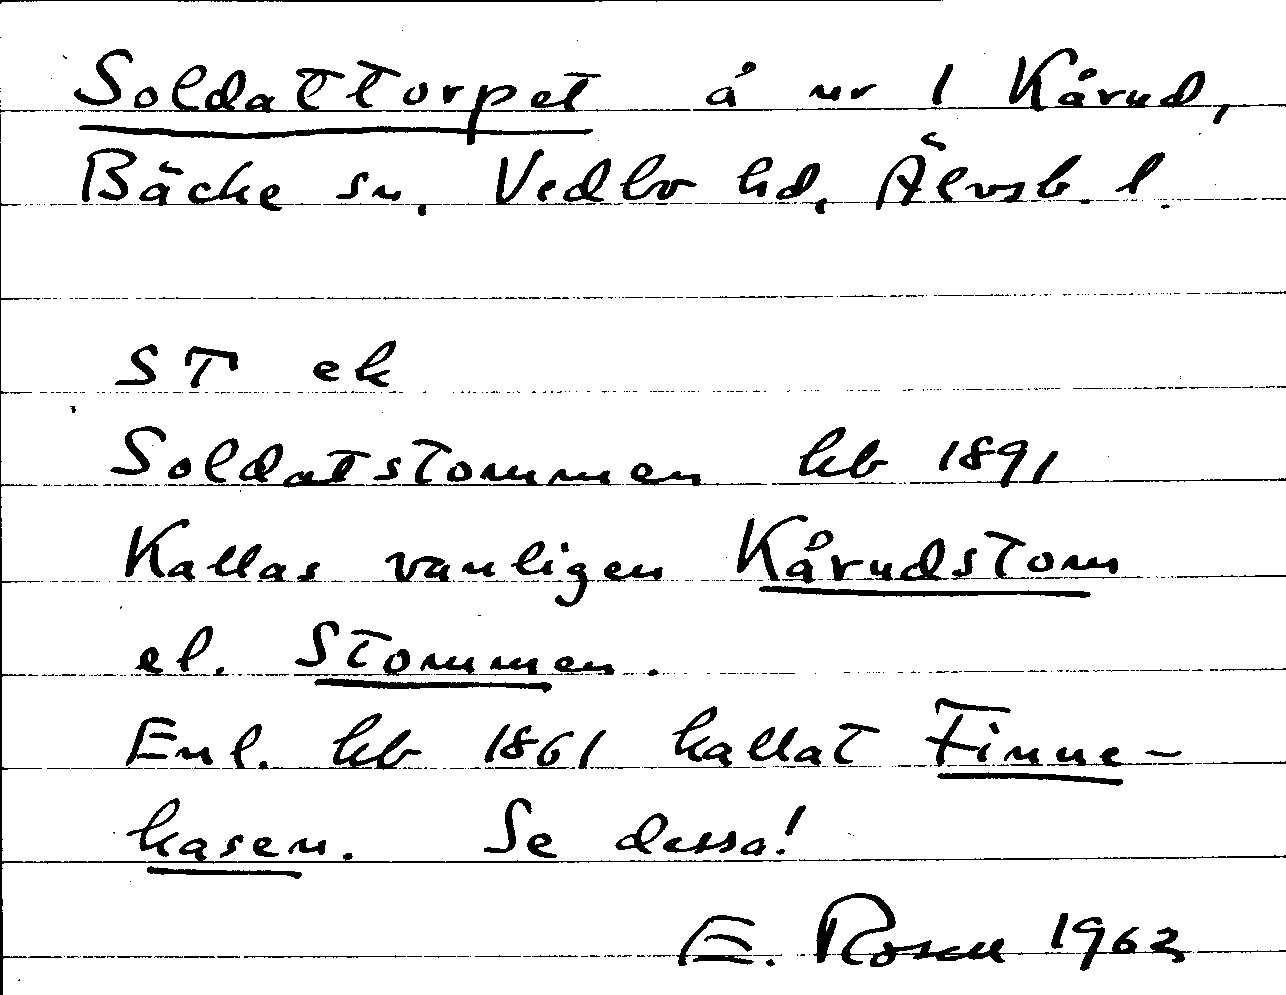 Soldattorpet å nr 1 Kårud,
Bäcke sn, Vedbo hd, Älvsb. l.
ST ek
Soldatstommen hb 1891
Kallas vanligen Kårudstom
el. Stommen.
Enl. hb 1861 kallat Finne-
kasen. Se dessa!
E. Rosell 1963